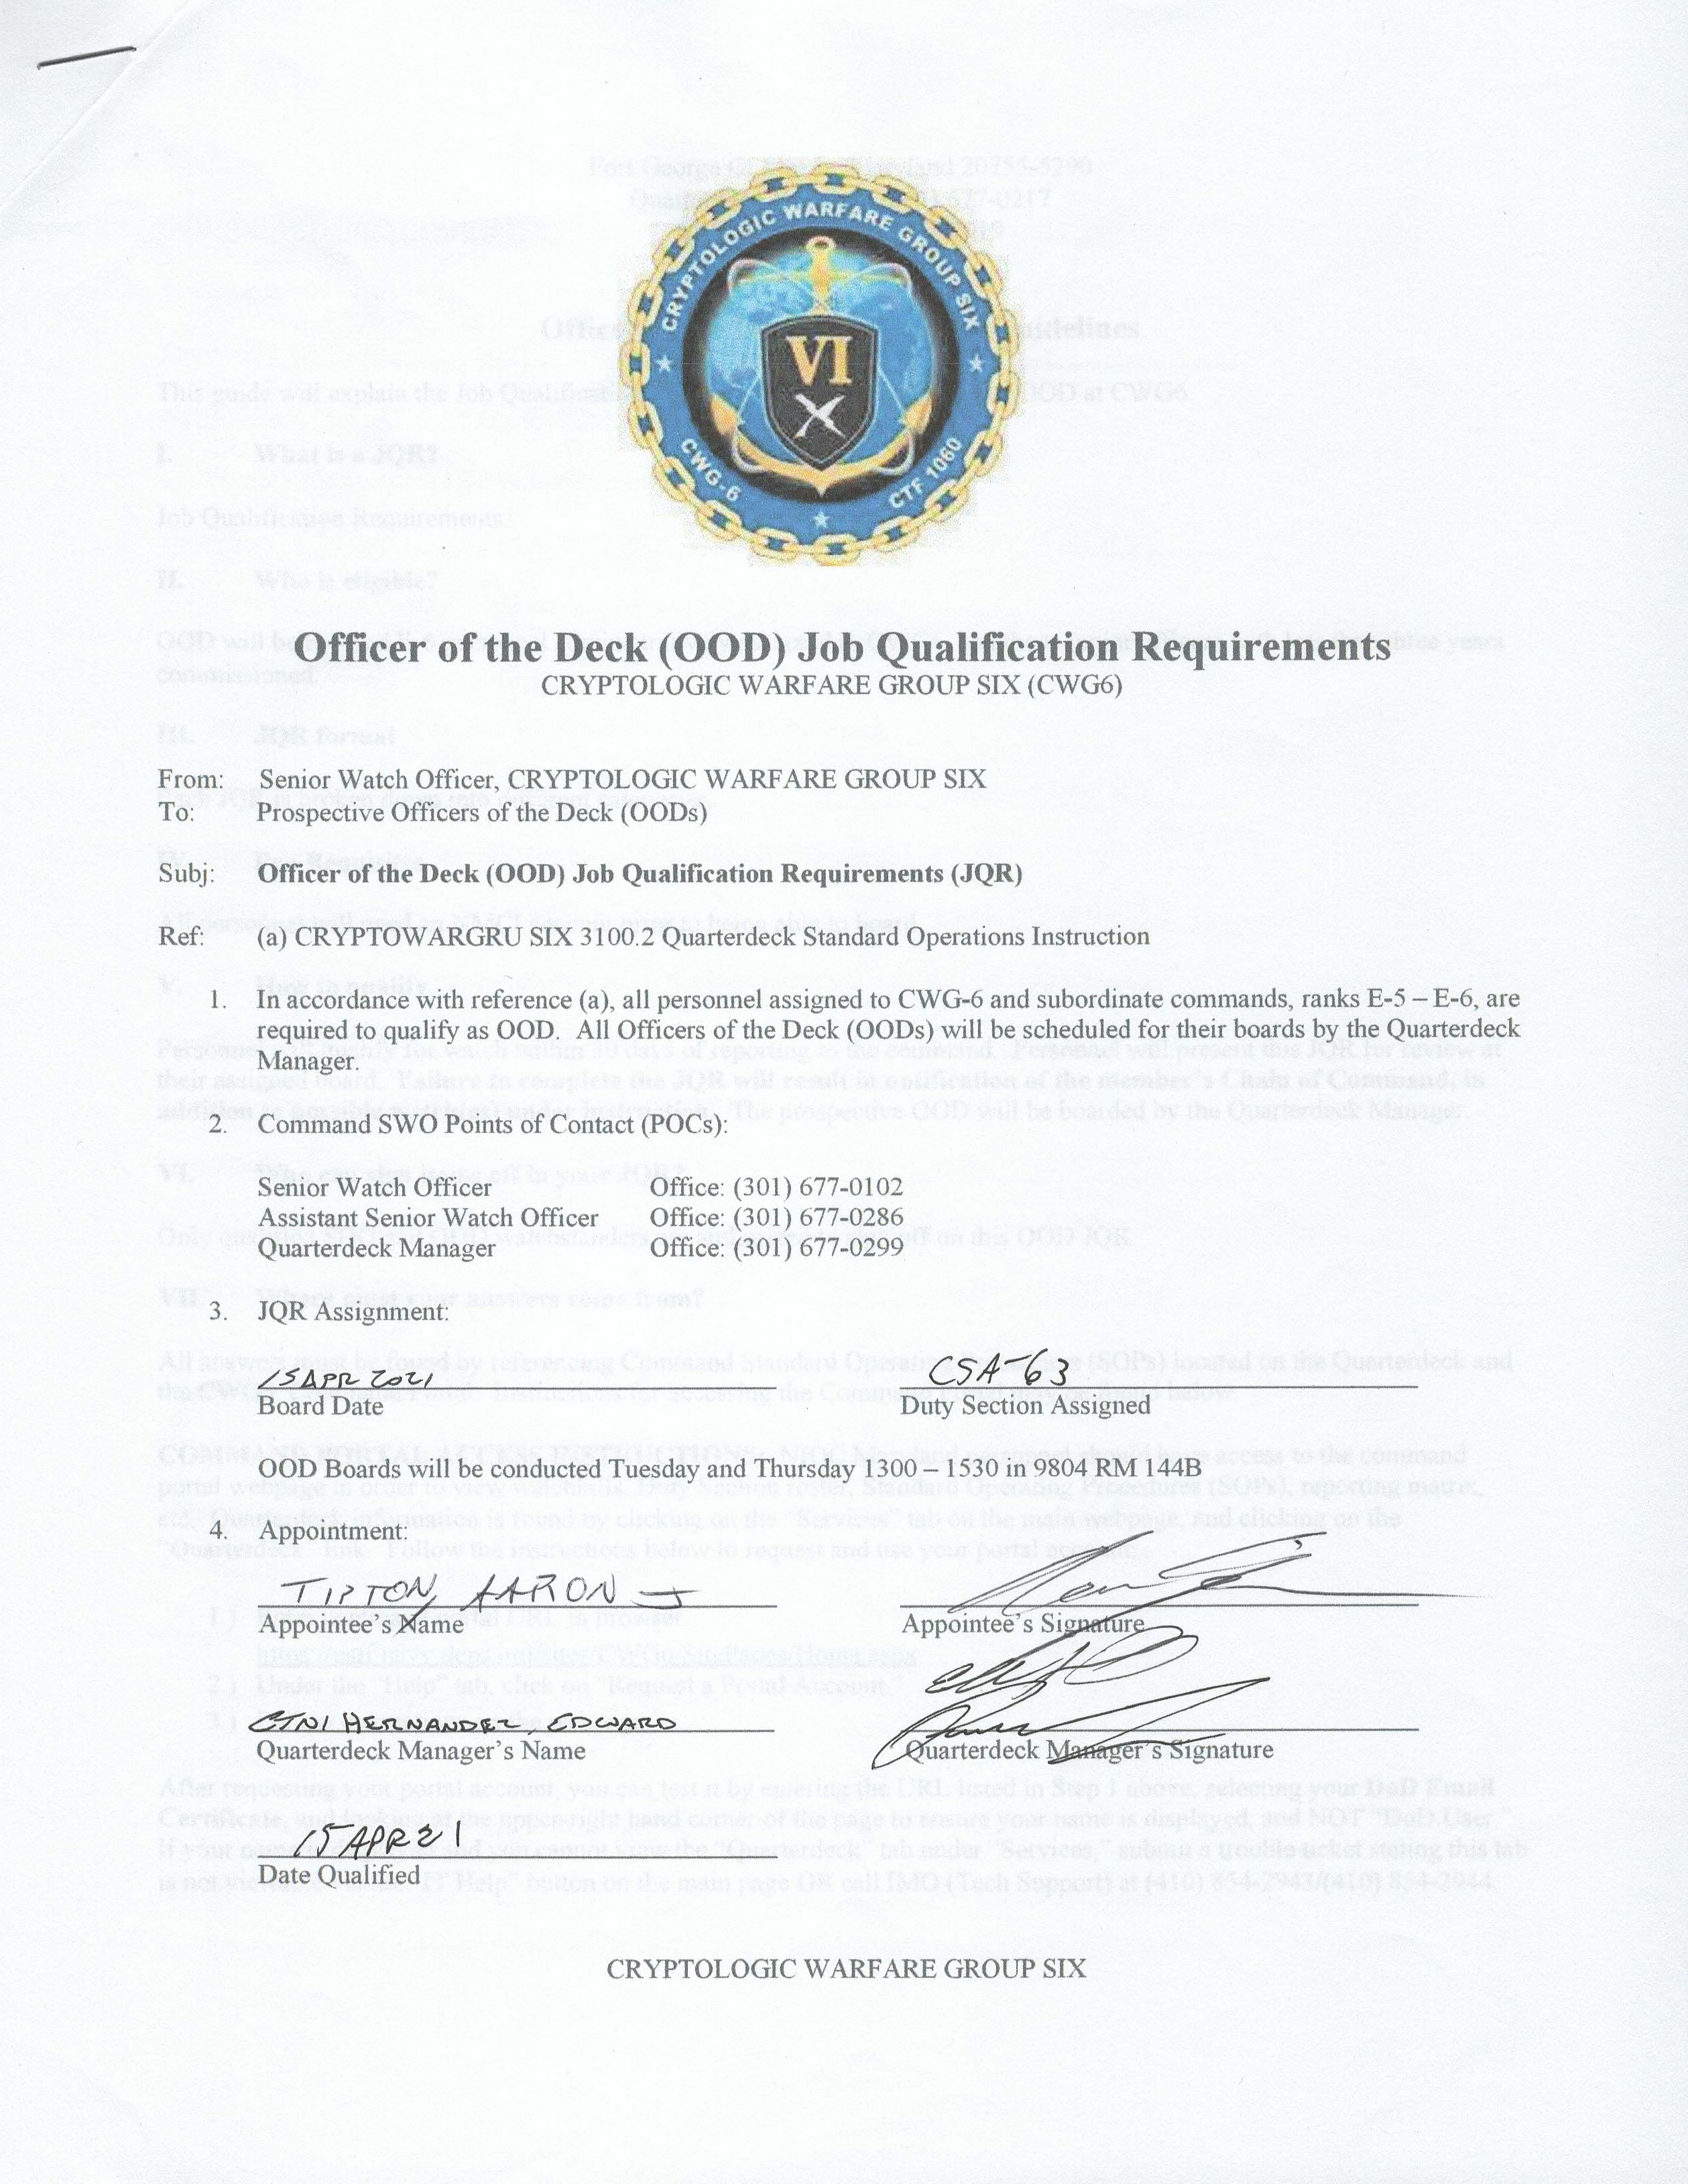 CRYPTOLOGIC WARFARE GROUP SIX
VI
CWG-6
CTF 1060
Officer of the Deck (OOD) Job Qualification Requirements
CRYPTOLOGIC WARFARE GROUP SIX (CWG6)
From: Senior Watch Officer, CRYPTOLOGIC WARFARE GROUP SIX
To: Prospective Officers of the Deck (OODs)
Subj: Officer of the Deck (OOD) Job Qualification Requirements (JQR)
Ref: (a) CRYPTOWARGRU SIX 3100.2 Quarterdeck Standard Operations Instruction
1. In accordance with reference (a), all personnel assigned to CWG-6 and subordinate commands, ranks E-5 – E-6, are
required to qualify as OOD. All Officers of the Deck (OODs) will be scheduled for their boards by the Quarterdeck
Manager.
2. Command SWO Points of Contact (POCs):
Senior Watch Officer Office: (301) 677-0102
Assistant Senior Watch Officer Office: (301) 677-0286
Quarterdeck Manager Office: (301) 677-0299
3. JQR Assignment:
15APR 2021 CSA-63
Board Date Duty Section Assigned
OOD Boards will be conducted Tuesday and Thursday 1300 – 1530 in 9804 RM 144B
4. Appointment:
TIPTON, AARON J
Appointee's Name Appointee's Signature
CTN1 HERNANDEZ, EDWARD
Quarterdeck Manager's Name Quarterdeck Manager's Signature
15APR21
Date Qualified
CRYPTOLOGIC WARFARE GROUP SIX